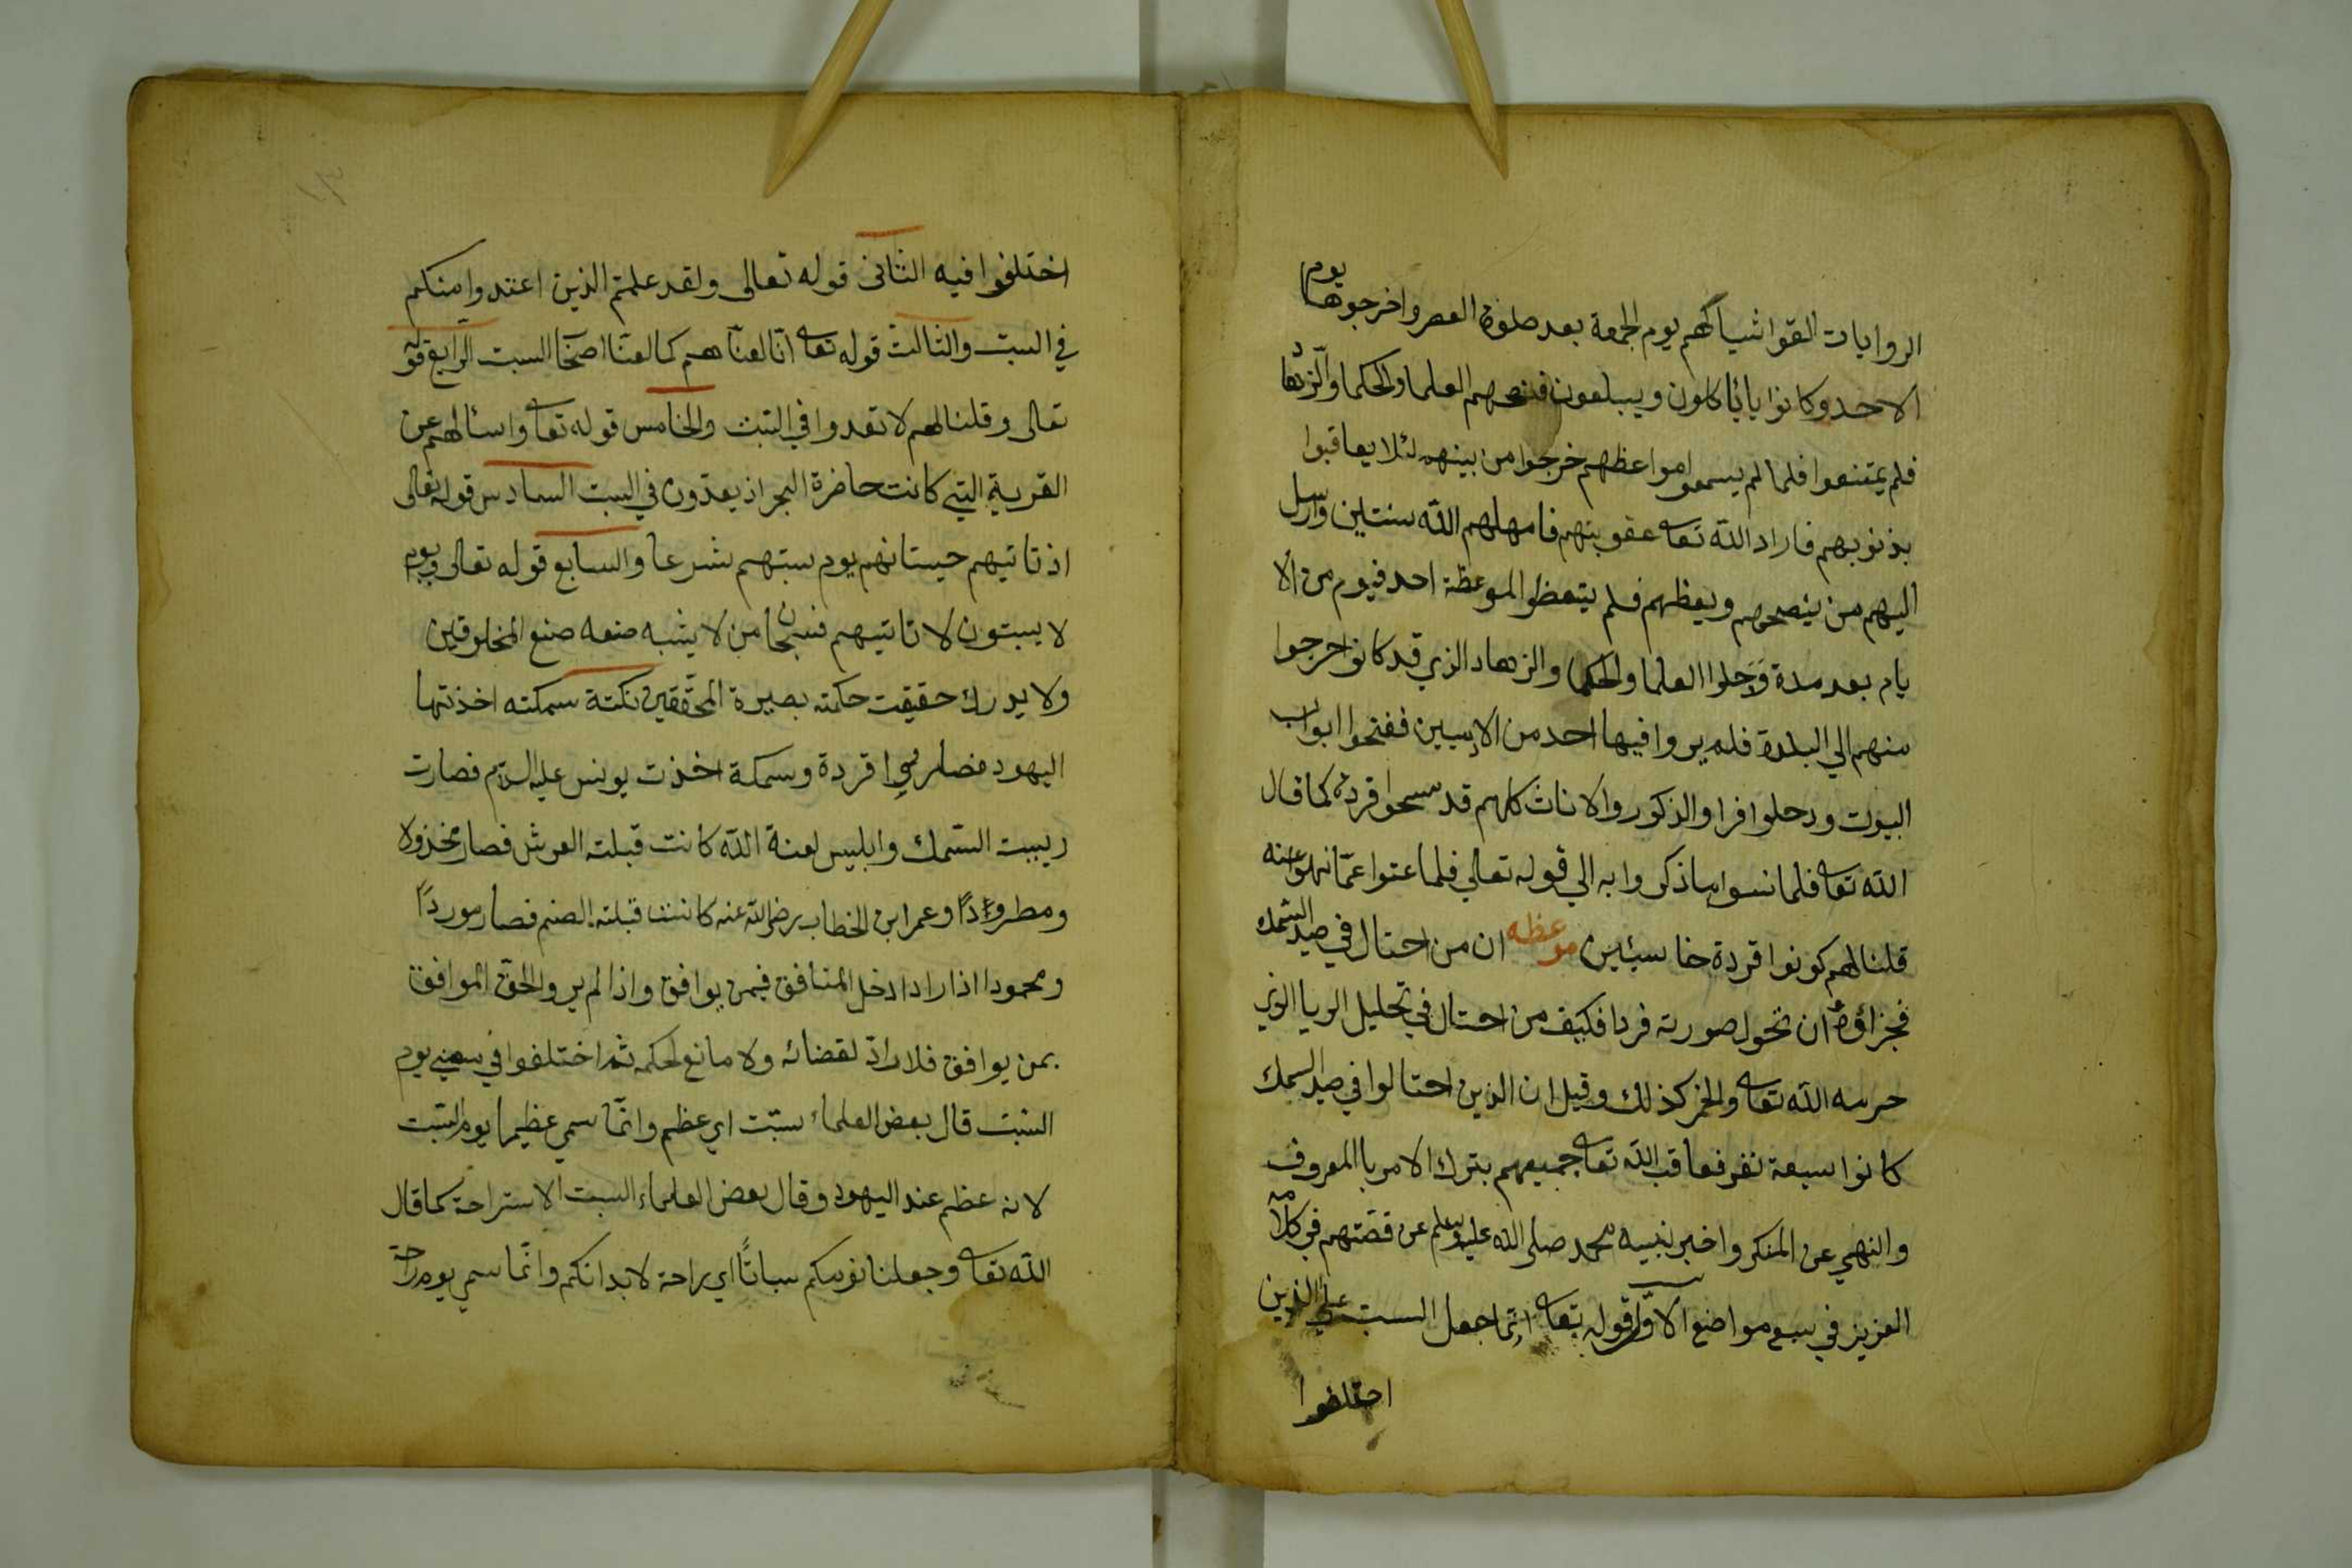 الروايات القوا شياكهم يوم الجمعة بعد صلوة العصر واخرجوها يوم
الاحد وكانوا يأيا كلون ويبلعون فنصحهم العلما والحكما والزهاد
فلم يمتنعوا فلما لم يسمعوا مواعظهم خرجوا من بينهم لئلا يعاقبوا
بذنوبهم فاراد الله تعا عقوبتهم فامهلهم الله سنتين وارسل
اليهم من ينصحهم ويعظهم فلم يتعظوا الموعظة احد فيوم من الا
يام بعد مدة دخلوا العلما والحكما والزهاد الذي قد كانوا خرجوا
منهم الي البلدة فلم يروا فيها احد من الانسيين ففتحوا ابواب
البيوت ودخلوا فراوا الذكور والاناث كلهم قد مسحوا قردة كما قال
الله تعا فلما نسوا ما ذكروا به الي قوله تعالي فلما عتوا عمّا نهوا عنه
قلنا لهم كونوا قردة خاسئين موعظه ان من احتال في صيد السّمك
فجزاؤه ان تحول صورته قردا فكيف من احتال في تحليل الربا الذي
حرمه الله تعا والخمر كذلك وقيل ان الذين احتالوا في صيد السمك
كانوا سبعة نفر فعاقب الله تعا جميعهم بترك الامر باالمعروف
والنهي عن المنكر واخبر نبيه محمد صلى الله عليه وسلم عن قصّتهم في كلامه
العزيز في سبع مواضع الاوّل قوله تعا انّما جعل السبت علي الذين
اختلفوا
اختلفوا فيه الثانى قوله تعالى ولقد علمتم الذين اعتدوا منكم
في السبت والثالث قوله تعا او نلعنهم كما لعنّا اصحاب السبت الرّابع قوله
تعالى وقلنا لهم لا تعدوا في السّبت والخامس قوله تعا واسئالهم عن
القرية التي كانت حاضرة البحر اذ يعدّون في السبت السادس قوله تعالى
اذ تاتيهم حيتانهم يوم سبتهم شرعا والسابع قوله تعالى ويوم
لا يسبتون لا تاتيهم فسبحان من لا يشبه صنعه صنع المخلوقين
ولا يدرك حقيقت حكمته بصيرة المحقّقين نكتة سمكته اخذتها
اليهود فصاروا قردة وسمكة اخذت يونس عليه السلام فصارت
ربيبت السّمك وابليس لعنة الله كانت قبلته العرش فصار مخذولا
ومطرودًا وعمر ابن الخطاب رضى الله عنه كانت قبلته الصنم فصار موردًا
ومحمودا اذا اراد ادخل المنافق فيمن يوافق واذا لم يرد الحق الموافق
بمن يوافق فلا رادّ لقضائه ولا مانع لحكمه ثم اختلفوا في سبب يوم
السّبت قال بعض العلماء سبّت اي عظم وانّما سمي عظيما يوم السّبت
لانه عظم عند اليهود وقال بعض العلماء السبت الاستراحة كما قال
الله تعا وجعلنا نومكم سباتًا اي راحة لابدانكم وانّما سمي يوم راحة